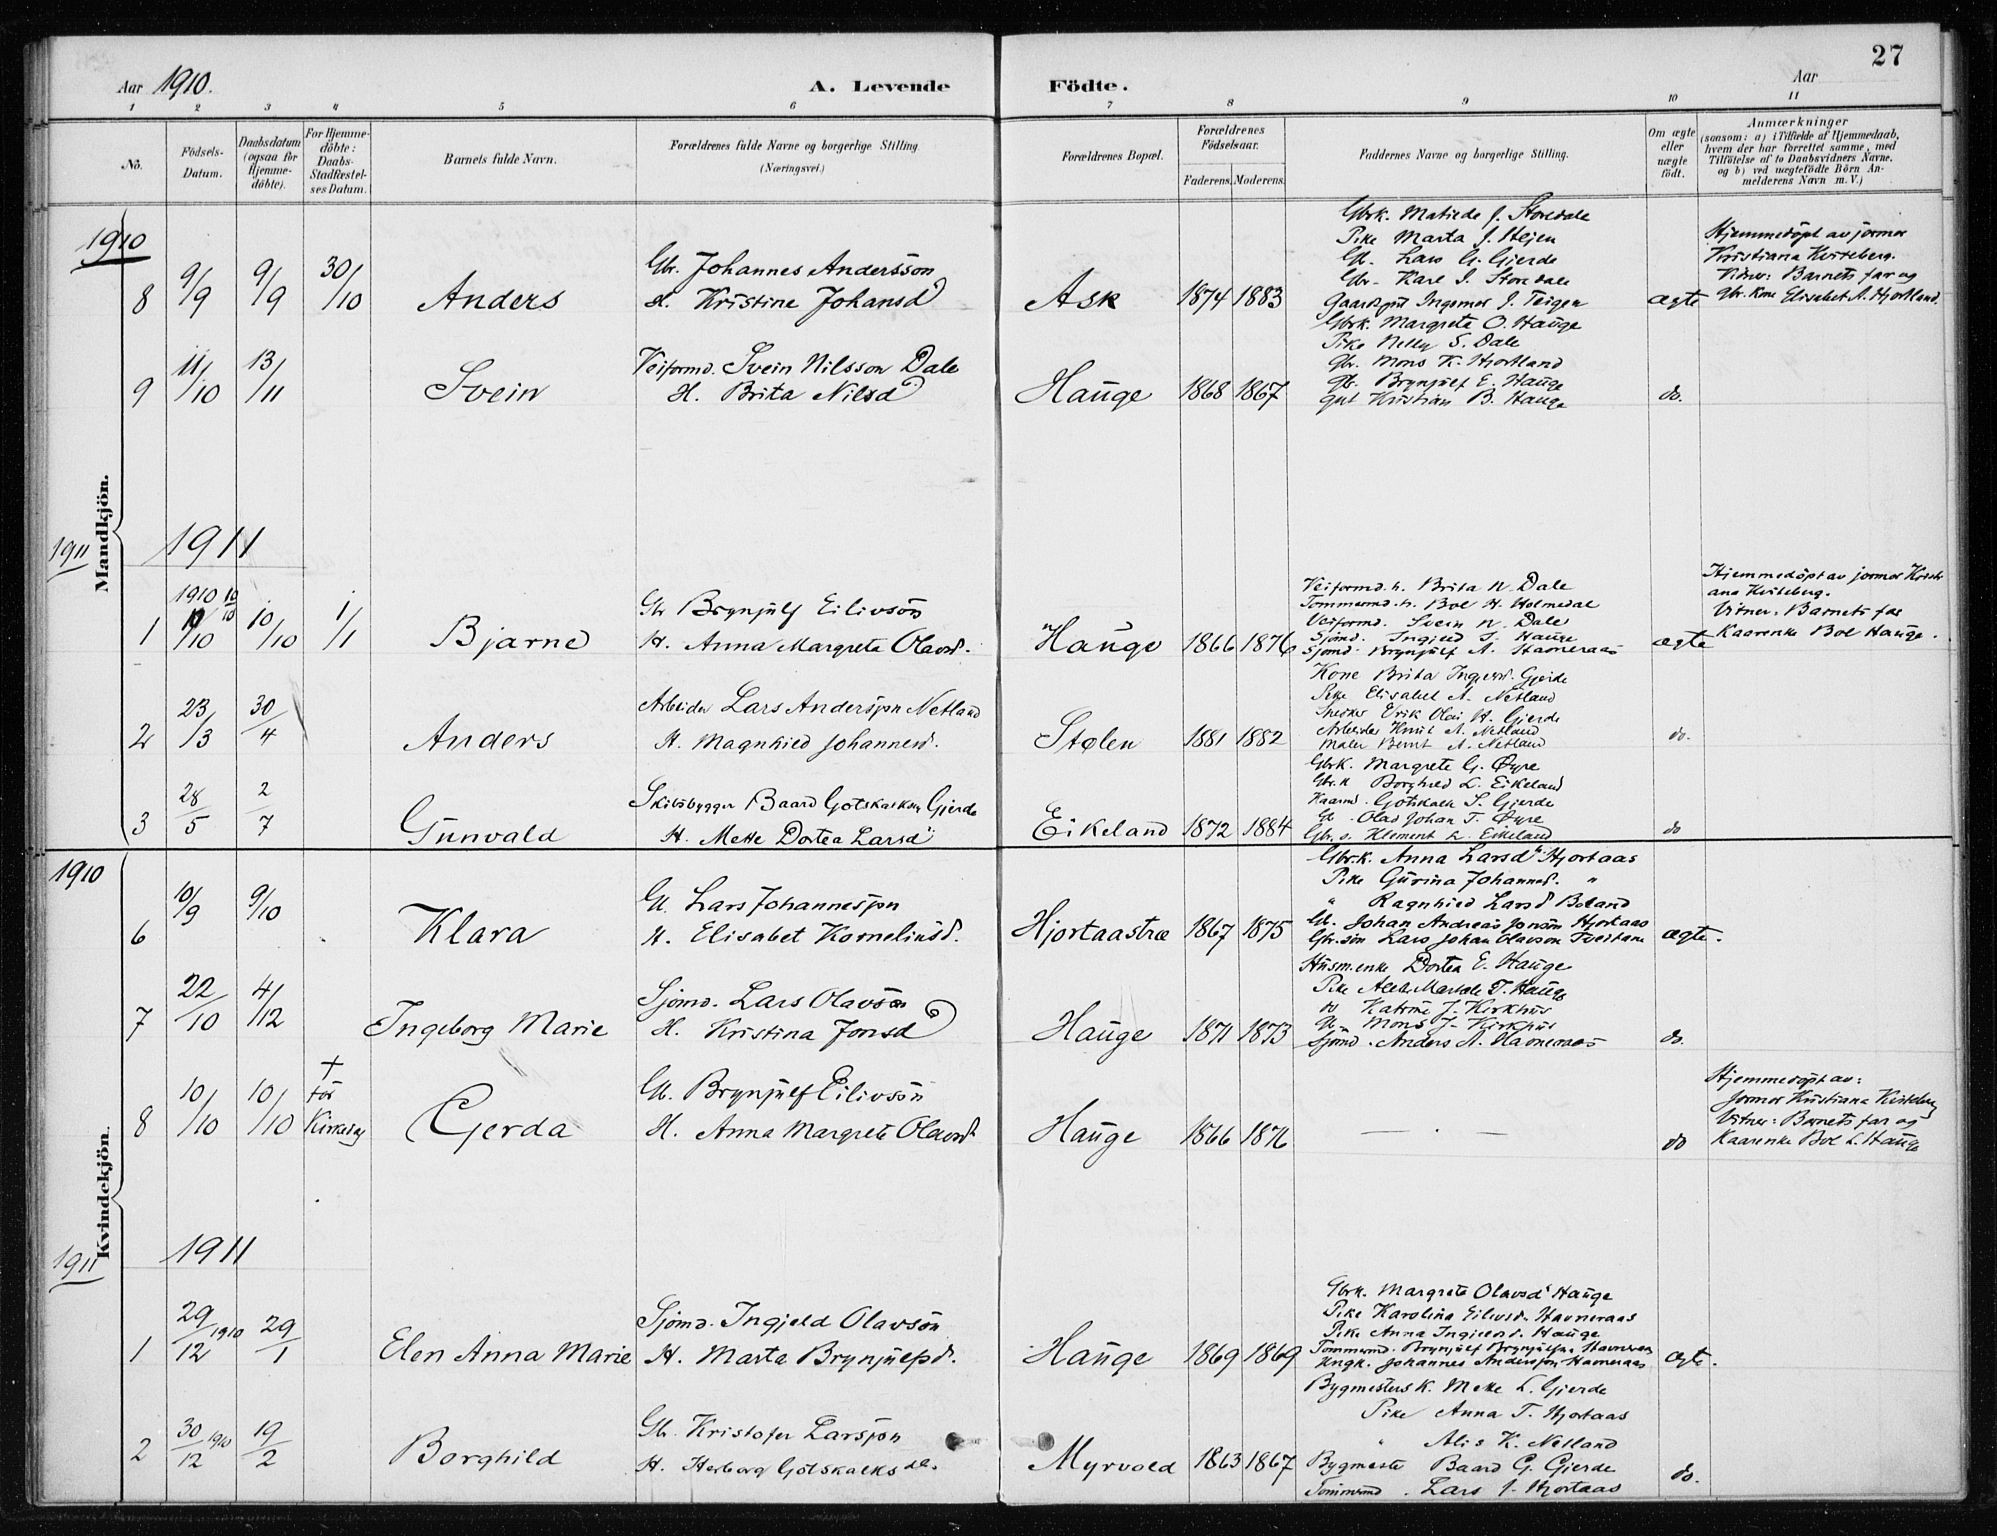 27
Aar 1910. A. Levende Födte. Aar
1 2 3 4 5 6 7 8 9 10 11
Nö.
Födsels-Datum.
Daabsdatum (ogsaa for Hjemmedöbte).
For Hjemmedöbte: Daabs-Stadfæstelses Datum.
Barnets fulde Navn.
Forældrenes fulde Navne og borgerlige Stilling
(Næringsvei.)
Forældrenes Bopæl.
Forældrenes Födselsaar.
Faderens. Moderens.
Faddernes Navne og borgerlige Stilling.
Om ægte eller uægte födt.
Anmærkninger
(saasom: a) i Tilfælde af Hjemmedaab,
hvem der har forrettet samme, med
Tilföielse af to Daabsvidners Navne,
og b) ved uægtefödte Börn An-
melderens Navn m.V.)
Mandkjön.
1910
8 9/9 9/9 30/10 Anders
Gbr. Johannes Andersson
H. Kristine Johansd
Ask 1874 1883
Gbrk. Matilde J. Storedale
Pike Marta J. Stejen
Gbr. Lars G. Gjerde
Gbr. Karl I. Storedale
Gaardgut Ingemar J. Teigen
ægte
Hjemmedöpt av jormor
Kristiana Kviteberg.
Vitner: Barnets far og
Gbr. Kone Elisabet A. Hjortland.
9 11/10 13/11 Svein
Veiformd. Svein Nilsson Dale
H. Brita Nilsd
Hauge 1868 1867
Gbrk. Margrete O. Hauge
Pike Nelly S. Dale
Gbr. Mons K. Hjortland
Gbr. Brynjulf E. Hauge
gut Kristian B. Hauge
do.
1911
1911
1 1910 10/10 10/10 1/1 Bjarne
Gbr Brynjulf Eilivsön
H. Anna Margrete Olavsd.
Hauge 1866 1876
Veiformd. h. Brita N. Dale
Tømmermd. h. Boe H. Holmedal
Veiformd. Svein N. Dale
Sjömd. Ingjeld S. Hauge
Sjömd. Brynjulf A. Havneraas
ægte
Hjemmedöpt av jormor Kristi
ana Kviteberg.
Vitner: Barnets far
Kaarenke Boe Hauge.
2 23/3 30/4 Anders
Arbeider Lars Andersson Netland
H. Magnhild Johannesd.
Stølen 1881 1882
Kone Brita Ingvald. Gjerde
Pike Elisabet A. Netland
Snedker Erik Olai H. Gjerde
Arbeider Knut A. Netland
Maler Bernt A. Netland
do.
3 28/5 2/7 Gunvald
Skibsbygger Baard Gotskalksen Gjerde
H. Mette Dortea Larsd
Eikeland 1872 1884
Gbrk. Margrete G. Øyre
Gbr.k Borghild L. Eikeland
Kaarmd. Gotskalk S. Gjerde
Gbr. Olas Johan T. Øyre
Gbr. s. Klement L. Eikeland
do
Kvindekjön.
1910
6 10/9 9/10 Klara
Gbr. Lars Johannesson
H. Elisabet Korneliusd.
Hjortaastræ 1867 1875
Gbr.k. Anna Larsd Hjortaas
Pike Gurina Johannesd. "
" Ragnhild Larsd Boland
Gbr. Johan Andreas Jonsön Hjortaas
Gbr. sön Lars Johan Olavson Tveitane
ægte.
7 22/10 4/12 Ingeborg Marie
Sjömd. Lars Olavsön
H. Kristina Jonsd
Hauge 1871 1873
Husm.enke Dortea E. Hauge
Pike Aleda Matilde T. Hauge
" Katrine J. Kirkhus
Gbr. Mons J. Kirkhus
Sjömd. Anders A. Havneraas
do.
8 10/10 10/10 † för Kirkegang Gerda
Gbr. Brynjulf Eilivsön
H. Anna Margrete Olavsd
Hauge 1866 1876
— . — . —
do
Hjemmedöpt av:
Jormor Kristiana Kviteberg
Vitner: Barnets far og
Kaarenke Boe L. Hauge
1911
1911
1 29/12 1910 29/1 Elen Anna Marie
Sjömd. Ingjeld Olavsön
H. Marta Brynjulfsd.
Hauge 1869 1869
Gbrk. Margrete Olavsd Hauge
Pike Karolina Eilevsd. Havneraas
Pike Anna Ingjeldsd. Hauge
Tømmermd. Brynjulf Brynjulfsn. Havneraas
Ungk. Johannes Andersson Havneraas
ægte.
2 30/12 1910 19/2 Borghild
Gbr. Kristofer Larsson
H. Herborg Gotskalksd.
Myrvold 1863 1867
Bygmesters K. Mette L. Gjerde
Pike Anna T. Hjortaas
" Alis K. Netland
Bygmester Baard G. Gjerde
Tømmermd. Lars J. Hjortaas
do.